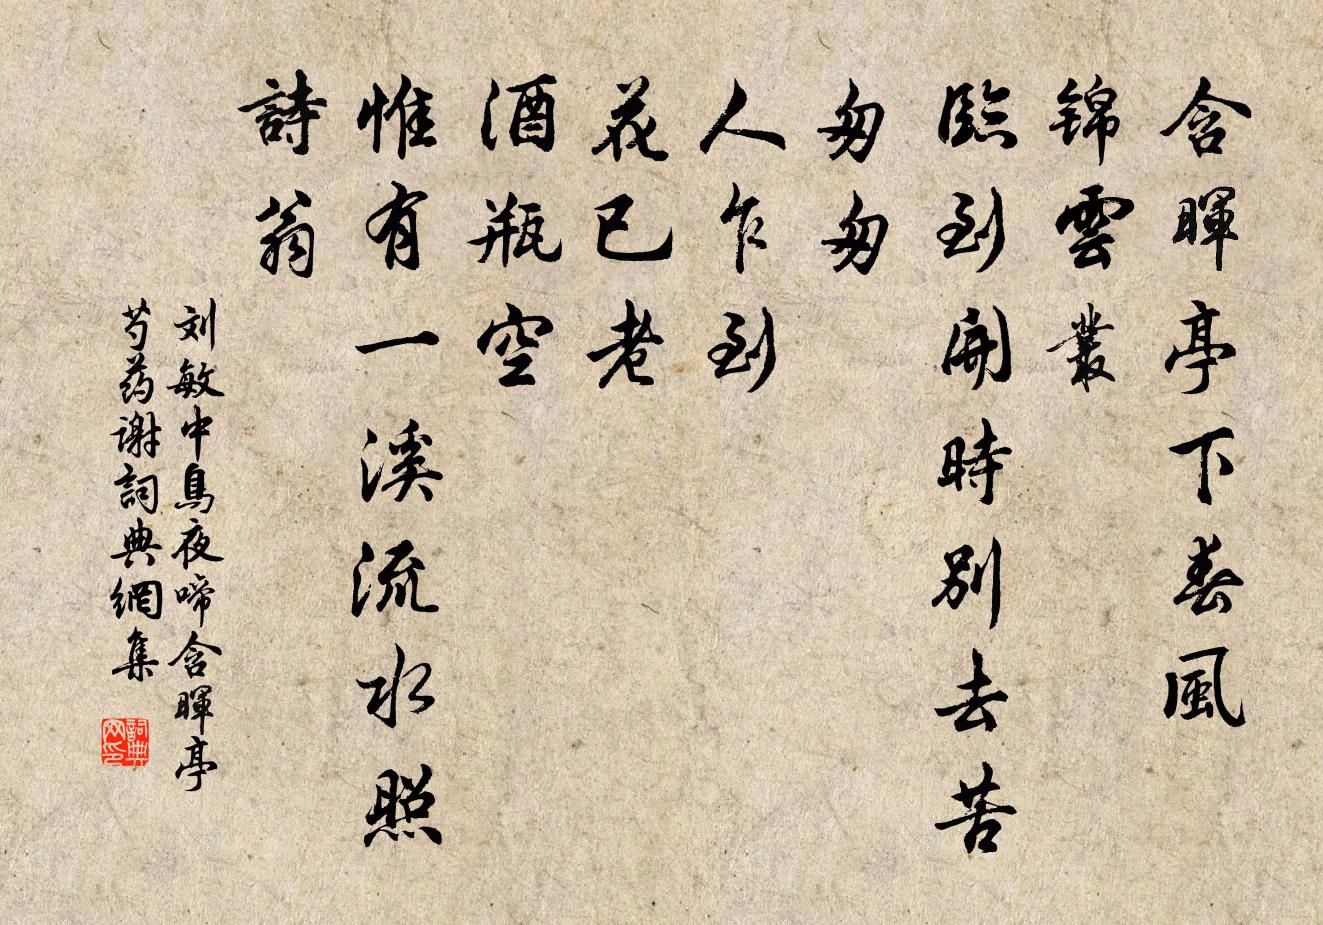 含暉亭下春風
锦雲叢
臨到開時别去苦
匆匆
人乍到
花已老
酒瓶空
惟有一溪流水照
詩翁
刘敏中烏夜啼含暉亭
芍药谢詞典網集
詞典
网印